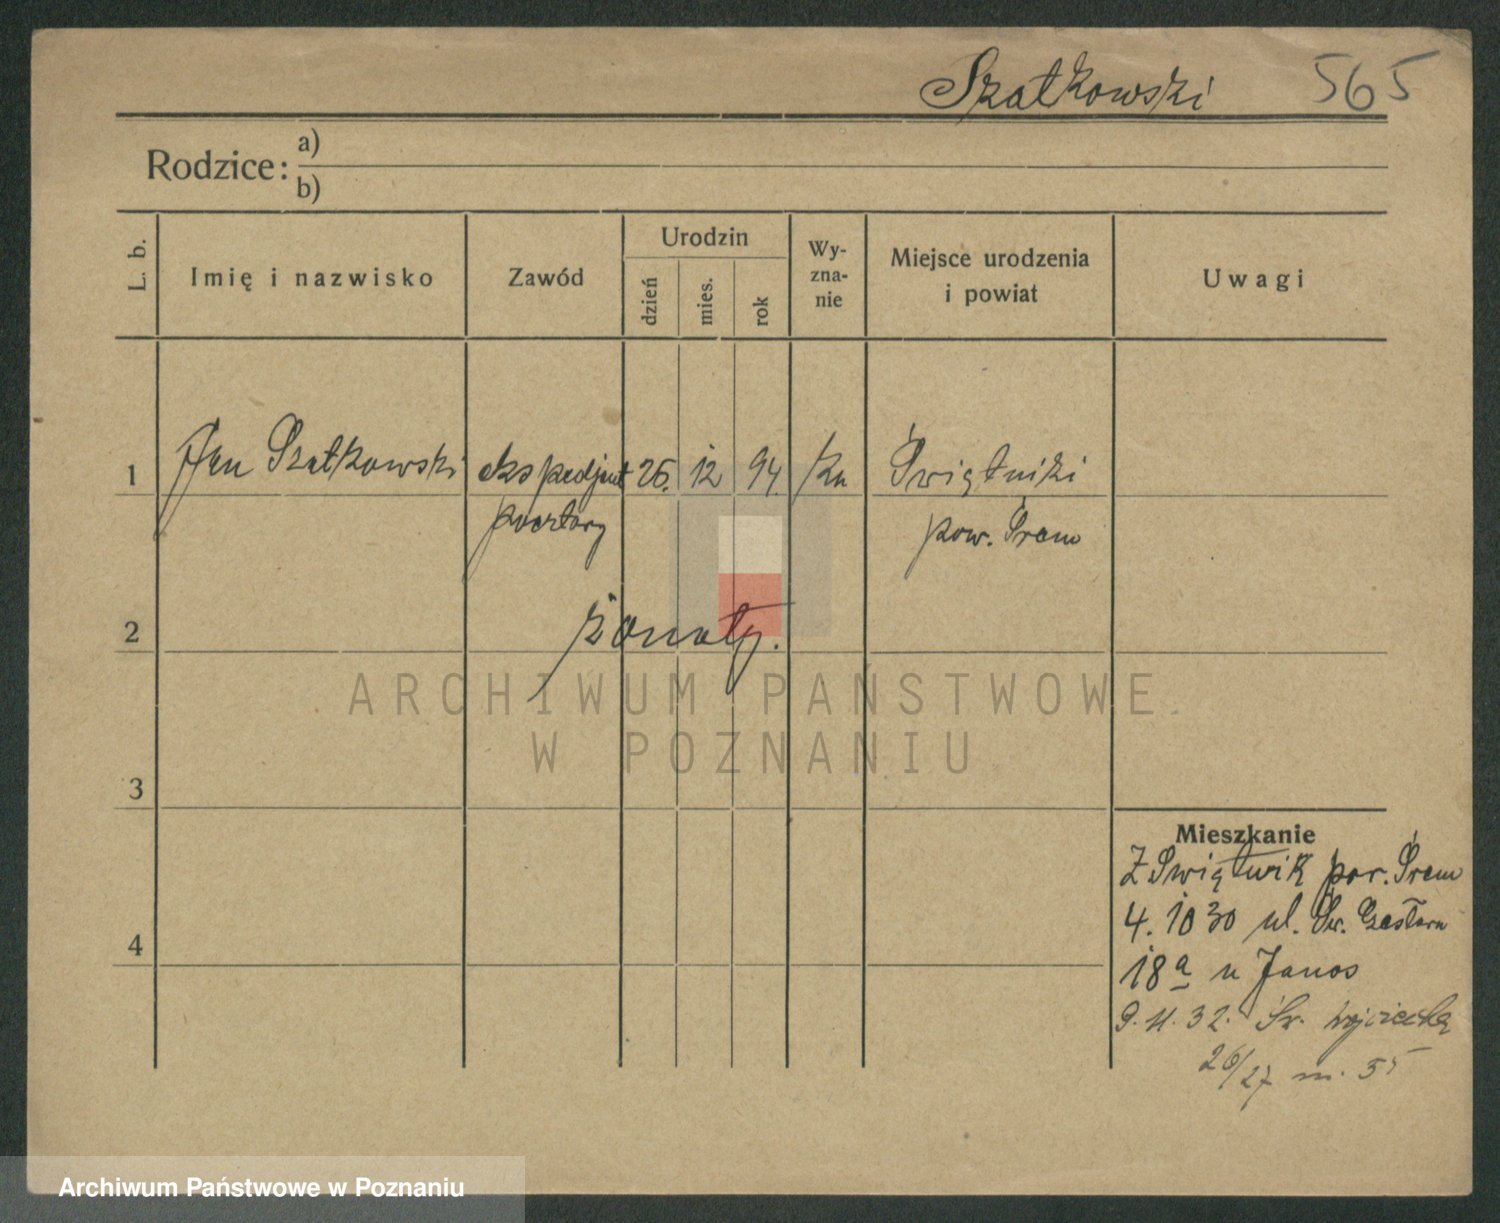 Szatkowski 565
Rodzice: a)
b)
L. b.
Imię i nazwisko
Zawód
Urodzin
dzień
mies.
rok
Wy-
zna-
nie
Miejsce urodzenia
i powiat
Uwagi
1 Jan Szatkowski ekspedjent 26. 12 94. kat Świątniki
pocztowy pow. Śrem
2 żonaty.
ARCHIWUM PAŃSTWOWE
W POZNANIU
3
Mieszkanie
Z Świątnik pow. Śrem
4. 10 30 ul. Św. Czesława
4 18a u Janos
9. 11. 32. Św. Wojciecha
26/27 m. 55
Archiwum Państwowe w Poznaniu